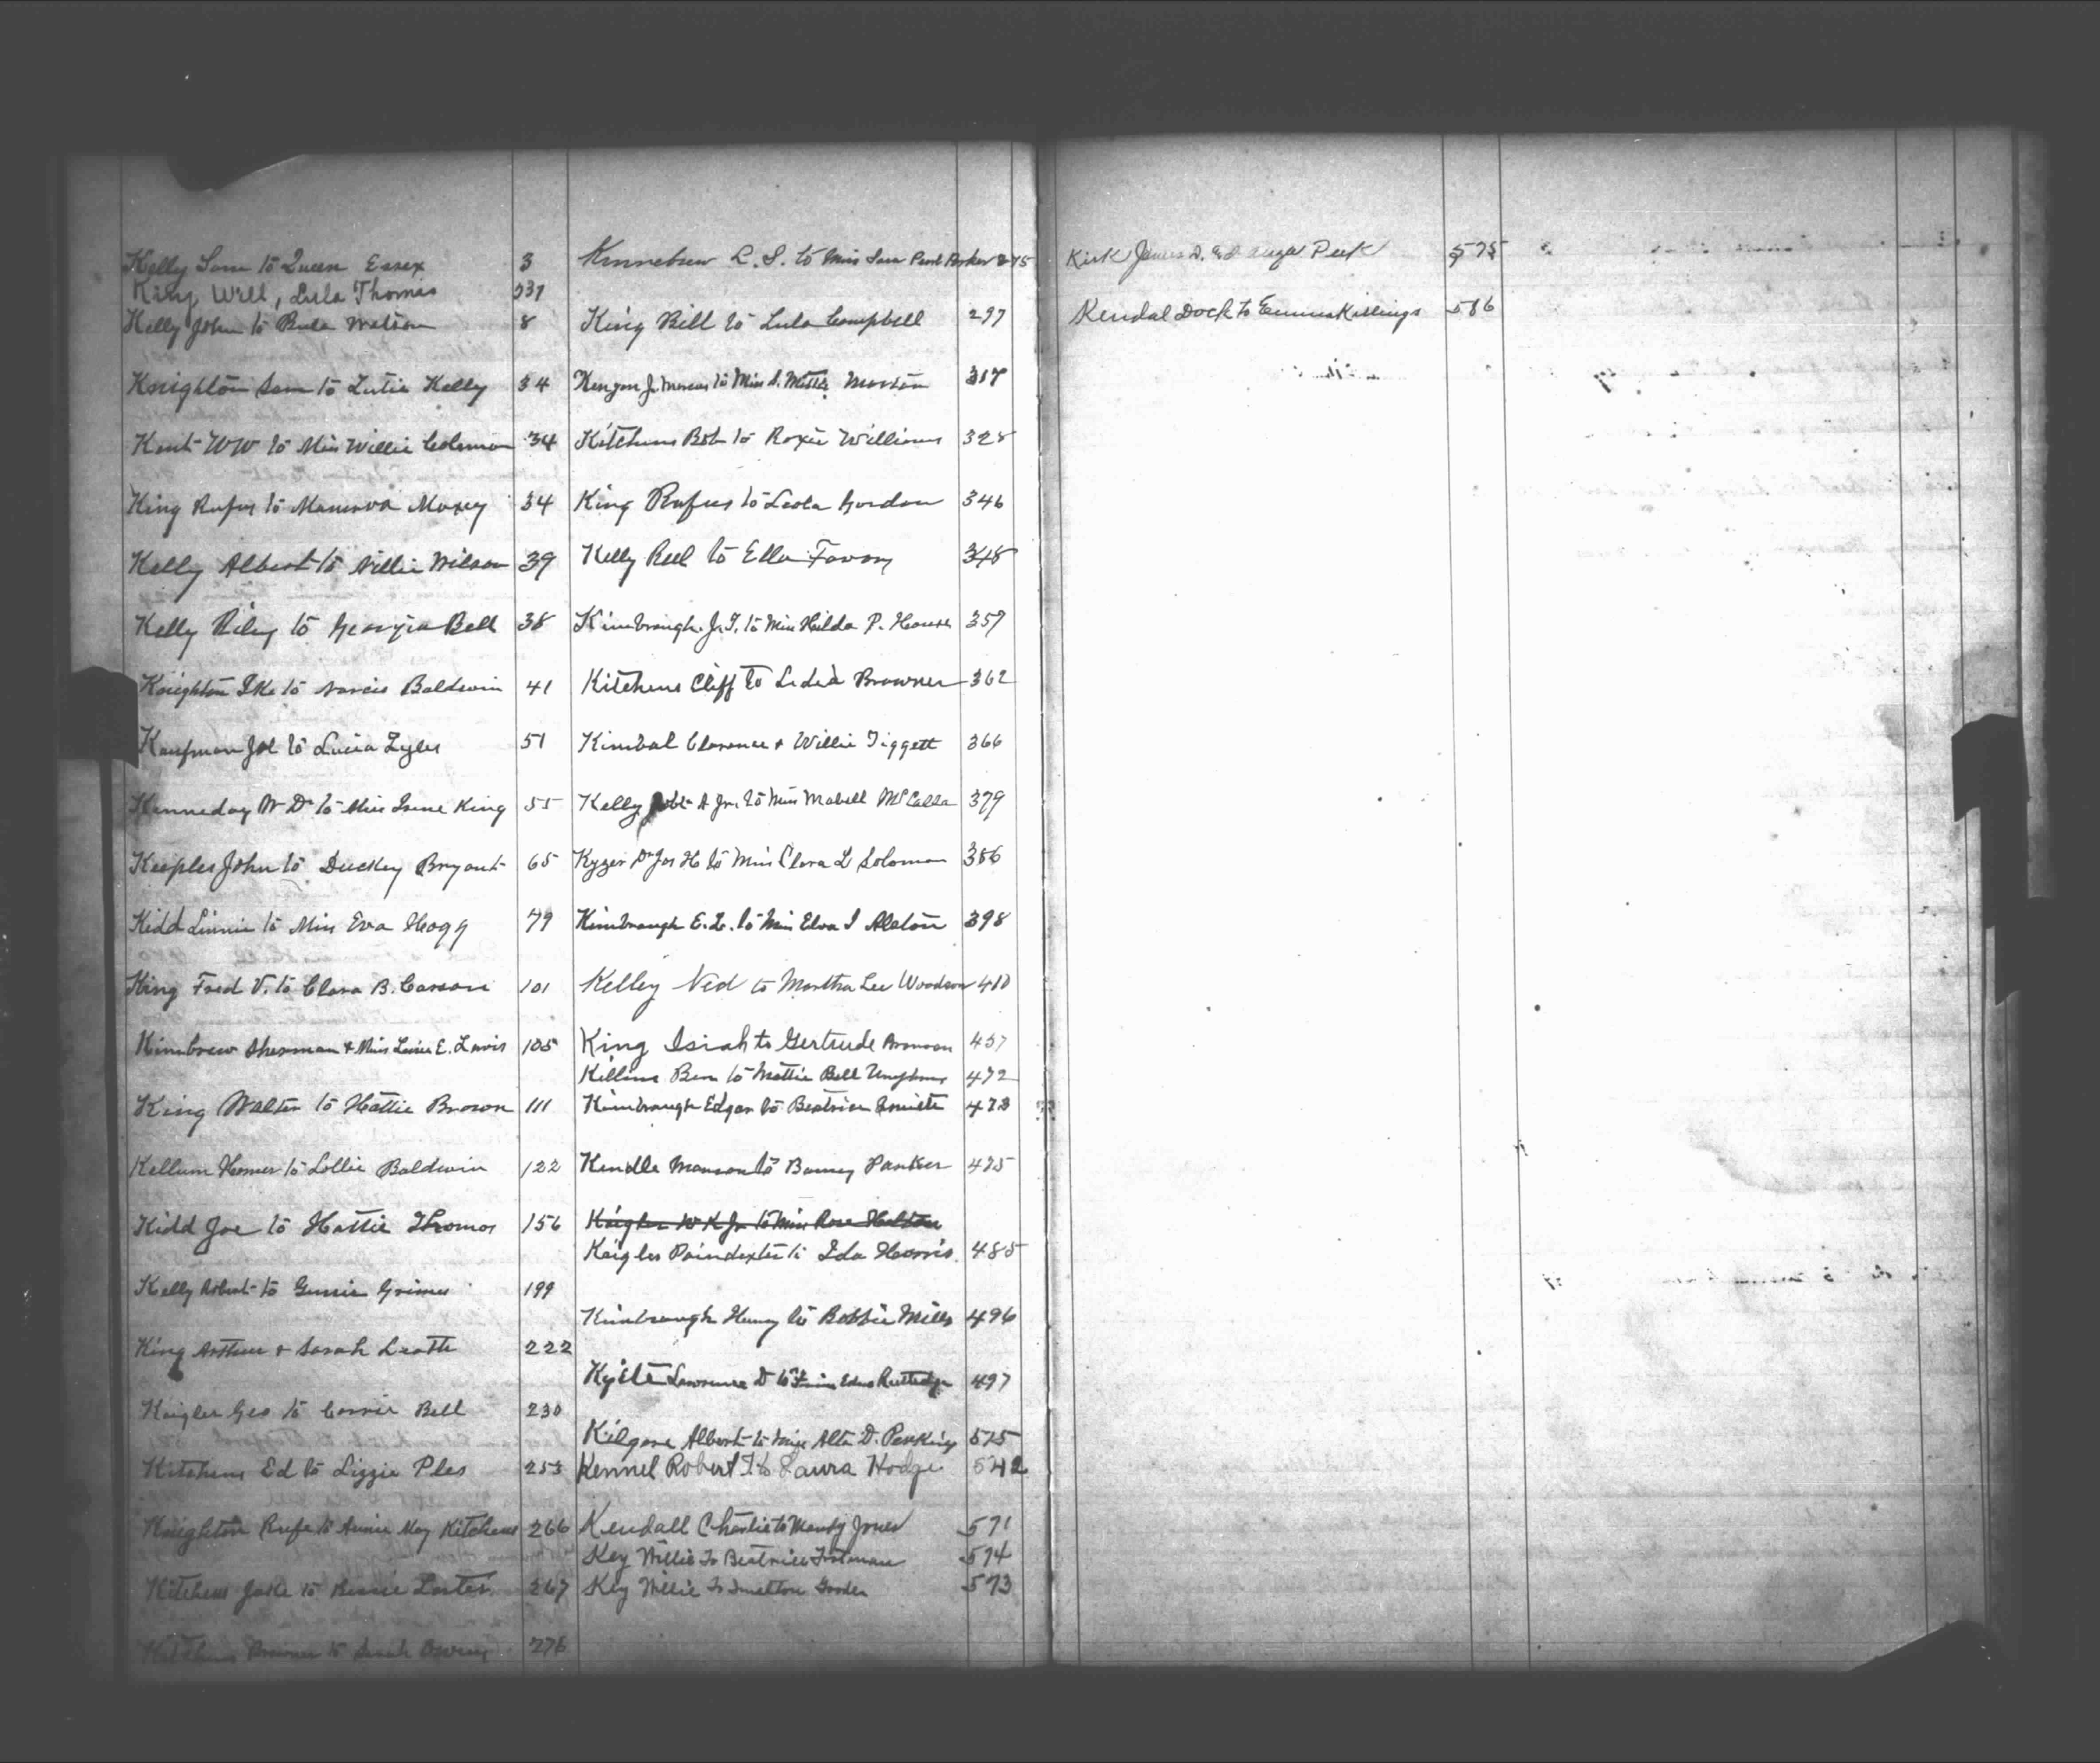 Kelly Sam to Queen Essex 3
King, Will, Lula Thomas 331
Kelly John to Beula Watson 8
Knighton Sam to Lutie Kelly 34
Kent WW to Miss Willie Coleman 34
King Rufus to Manerva Maxey 34
Kelly Albert to Nillie Wilson 39
Kelly Riley to Georgia Bell 38
Knighton Ike to Narcis Baldwin 41
Kaufman Joe to Lucia Zyler 51
Kenneday W D to Miss Irene King 55
Keeples John to Duckey Bryant 65
Kidd Linnie to Miss Eva Hogg 79
King Fred V. to Clara B. Carson 101
Kimbrew Sherman & Miss E. Lewis 105
King Walter to Hattie Brown 111
Kellum Homer to Lollie Baldwin 122
Kidd Joe to Hattie Thomas 156
Kelly Robert to Gussie Grimes 199
King Arthur & Sarah 222
Kaigler Geo to Carrie Bell 230
Kitchens Ed to Lizzie Ples 253
Knighton Rufe to Annie May Kitchens 266
Kitchens Jake to Bessie Lester 267
Kitchens Browner to Sarah 276
Kinnebrew L. S. to Miss Sara Pearl Parker 275
King Bill to Lula Campbell 297
J. to Miss S. Mattie Morton 317
Kitchens Bob to Roxie Williams 328
King Rufus to Leola Gordon 346
Kelly Reel to Ella Favors 348
Kimbrough J. T. to Miss Hilda P. House 357
Kitchens Cliff to Lidia Browner 362
Kimbal Clarence & Willie Tiggett 366
Kelly Robt A Jr. to Miss Mabell McCalla 379
Kyzer Dr Jos H to Miss Clara L Solomon 386
Kimbrough E. L. to Miss Elva I Alston 398
Kelley Ned to Martha Lee Woodson 410
King Isiah to Gertrude Aronson 457
Killins Ben to Mattie Bell 472
Kimbrough Edgar to Beatrice Smith 473
Kendle Manson to Parker 475
Kaigler W K Jr to Miss Rose Holston
Kaigler Poindexter to Ida Harris 485
Kimbrough Henry to Bobbie Mills 496
Kyile Lawrence D to Miss Edna Rutledge 497
Kilgore Albert to Miss Alta D. Perkins 515
Kennel Robert T to Laura Hodge 542
Kendall Charlie to Mandy Jones 571
Key Willie To Beatrice Trotman 574
Key Willie To 573
Kirk James D. Peek 575
Kendal Dock to Emma Killings 586